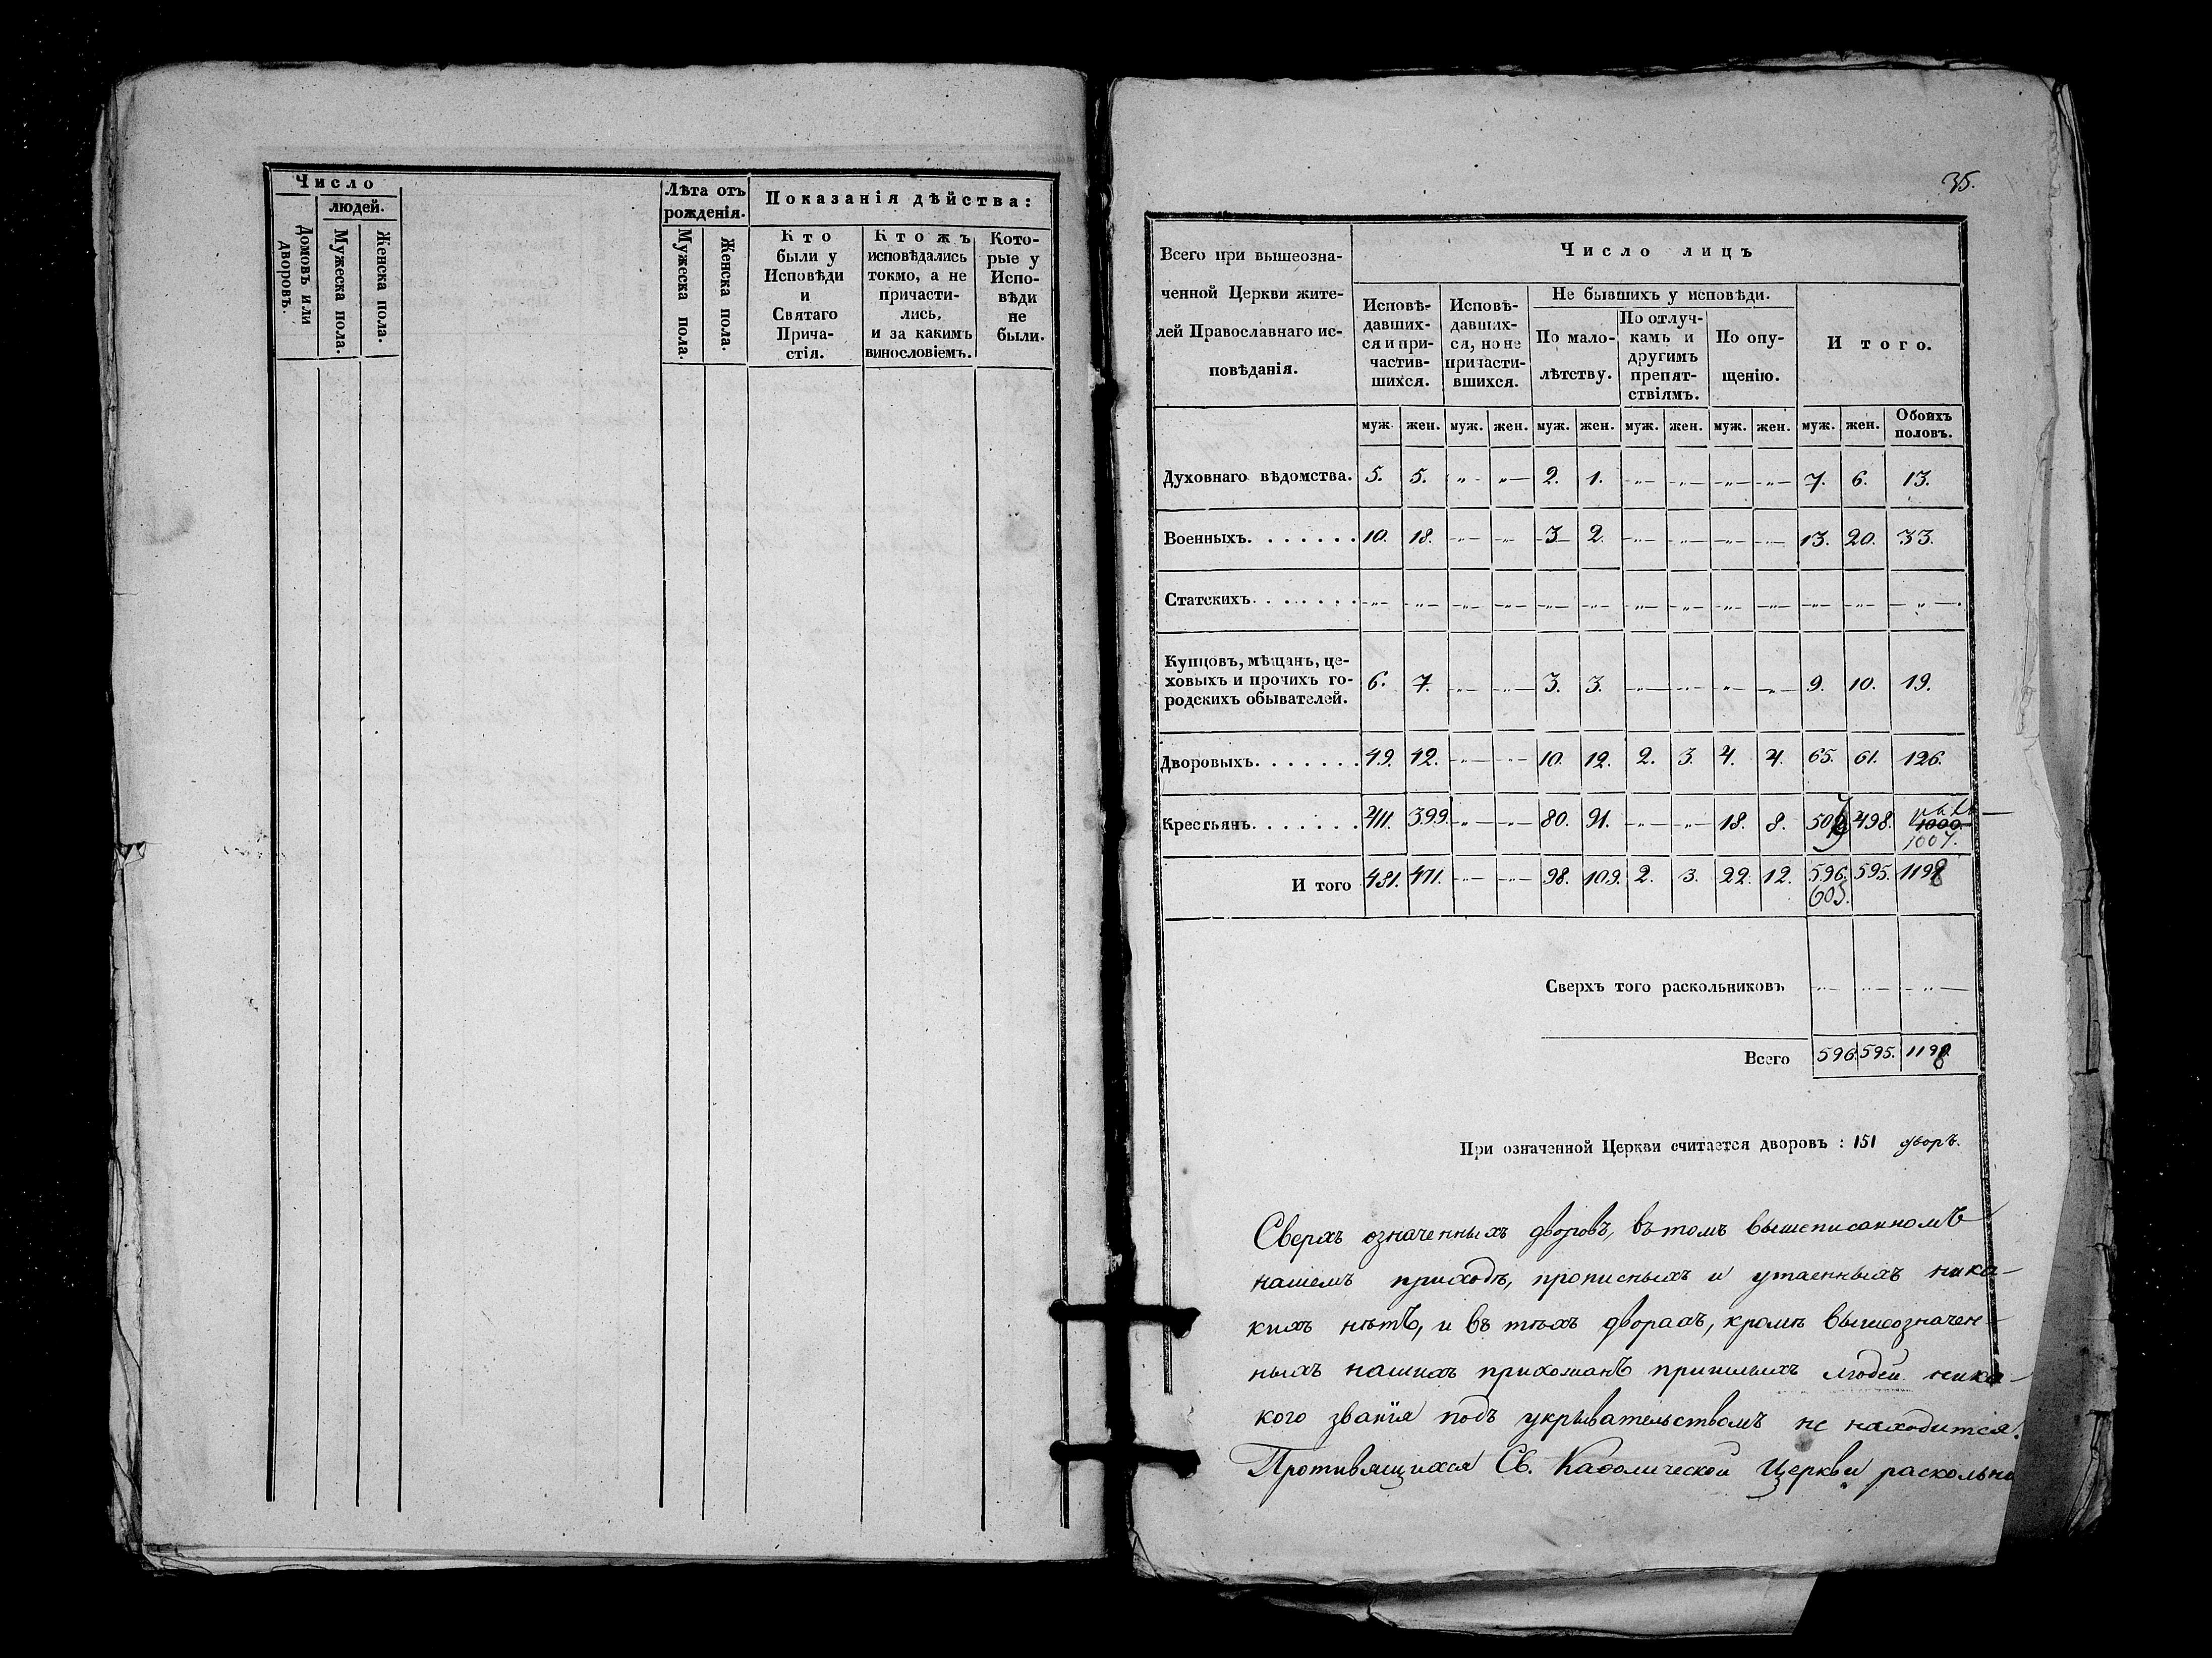 Число
людей.
Домовъ или дворовъ.
Мужеска пола.
Женска пола.
Лѣта отъ рожденія.
Мужеска пола.
Женска пола.
Показанія дѣйства:
Кто были у Исповѣди и Святаго Прича-стія.
Кто жъ исповѣдались токмо, а не причасти-лись, и за какимъ винословіемъ.
Кото-рые у Испо-вѣди не были.
35.
Всего при вышеозна-
ченной Церкви жите-
лей Православнаго ис-
повѣданія.
Число лицъ
Исповѣ-давших-ся и при-частив-шихся.
Исповѣ-давших-ся, но не причасти-вшихся.
Не бывшихъ у исповѣди.
По мало-лѣтству.
По отлуч-камъ и другимъ препят-ствіямъ.
По опу-щенію.
И того.
муж. жен. муж. жен. муж. жен. муж. жен. муж. жен. муж. жен. Обоихъ половъ.
Духовнаго вѣдомства. 5. 5. „ „ 2. 1. „ „ „ „ 7. 6. 13.
Военныхъ. 10. 18. „ „ 3 2. „ „ „ „ 13. 20. 33.
Статскихъ. „ „ „ „ „ „ „ „ „ „ „ „ „
Купцовъ, мѣщанъ, це-
ховыхъ и прочихъ го-
родскихъ обывателей. 6. 7. „ „ 3. 3. „ „ „ „ 9. 10. 19.
Дворовыхъ. 49. 42. „ „ 10. 12. 2. 3. 4. 4. 65. 61. 126.
Крестьянъ. 411. 399. „ „ 80. 91. „ „ 18. 8. 509 498. 1000.
1007.
И того 481. 471. „ „ 98. 109. 2. 3. 22. 12. 596. 595. 1198
603.
Сверхъ того раскольниковъ „ „ „
Всего 596. 595. 1198
При означенной Церкви считается дворовъ: 151 дворъ.
Сверхъ означенныхъ дворовъ, въ томъ вышеписанномъ
нашемъ приходѣ, прописныхъ и утаенныхъ ника-
кихъ нѣтъ, и въ тѣхъ дворахъ, кромѣ вышеозначен-
ныхъ нашихъ прихожанъ пришлыхъ людей ника-
кого званія подъ укрывательствомъ не находится.
Противящихся Св. Каѳолической Церкви раскольни